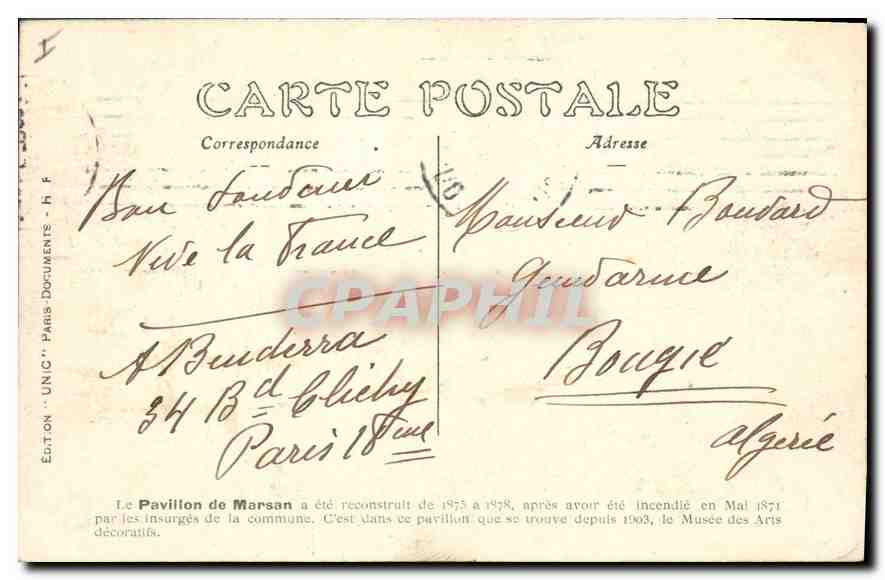 CARTE POSTALE
Correspondance
Adresse
Bon
Vive la France
A Benderra
34 Bd Clichy
Paris 18eme
Monsieur Boudard
Gendarme
Bougie
Algerie
CPAPHIL
ÉDITION "UNIC" PARIS-DOCUMENTS - H F
Le Pavillon de Marsan a été reconstruit de 1875 à 1878, après avoir été incendié en Mai 1871
par les insurgés de la commune. C'est dans ce pavillon que se trouve depuis 1903, le Musée des Arts
décoratifs.